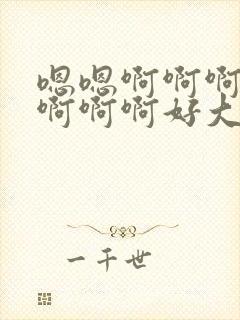 嗯嗯啊啊啊
啊啊啊好大
一千世